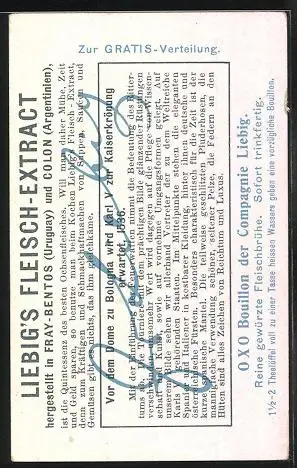 Zur GRATIS-Verteilung.
LIEBIG'S FLEISCH-EXTRACT
hergestellt in FRAY-BENTOS (Uruguay) und COLON (Argentinien),
ist die Quintessenz des besten Ochsenfleisches. Will man daher Mühe, Zeit
und Geld sparen, so benütze man Liebig's Fleisch-Extract,
denn zum Kräftigen und Schmackhaftmachen von Suppen, Saucen und
Gemüsen gibt es nichts, das ihm gleichkäme.
Vor dem Dome zu Bologna wird Karl V. zur Kaiserkrönung
erwartet, 1530.
Mit der Einführung der Feuerwaffen nimmt die Bedeutung des Ritter-
tums ab, die Turniere mit dem prächtigen Bilde glänzender Rüstungen
verschwinden; umsomehr Wert wird dagegen auf die Pflege von Wissen-
schaft und Kunst, sowie auf vornehme Umgangsformen gelegt. Auf
unserem Bilde sehen wir allerhand Vertreter der zu dem Weltreiche
Karls V. gehörenden Staaten. Im Mittelpunkte stehen die eleganten
Spanier und Italiener in kostbarer Kleidung, hinter ihnen deutsche und
österreichische Fürsten. Besonders charakteristisch für die Zeit ist der
kurze spanische Mantel. Die teilweise geschlitzten Pluderhosen, die
mannigfache Verwendung schöner, seltener Pelze, die Federn an den
Hüten sind alles Zeichen von Reichtum und Luxus.
OXO Bouillon der Compagnie Liebig.
Reine gewürzte Fleischbrühe. Sofort trinkfertig.
1½-2 Theelöffel voll zu einer Tasse heissen Wassers geben eine vorzügliche Bouillon.